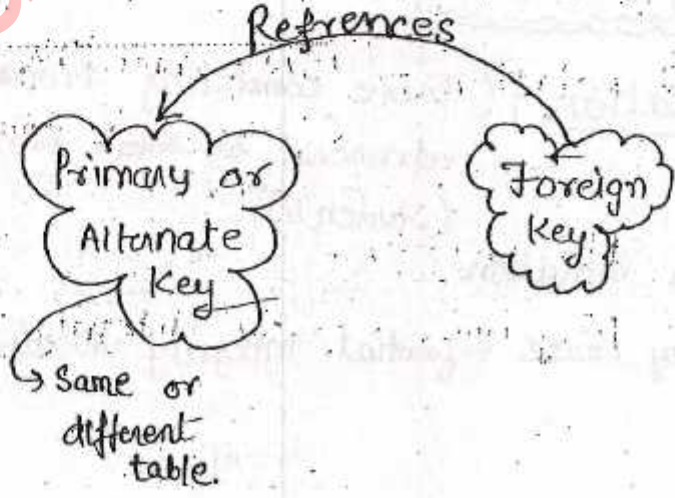 Refrences
Primary or
Alternate
Key
Foreign
Key
Same or
different
table.